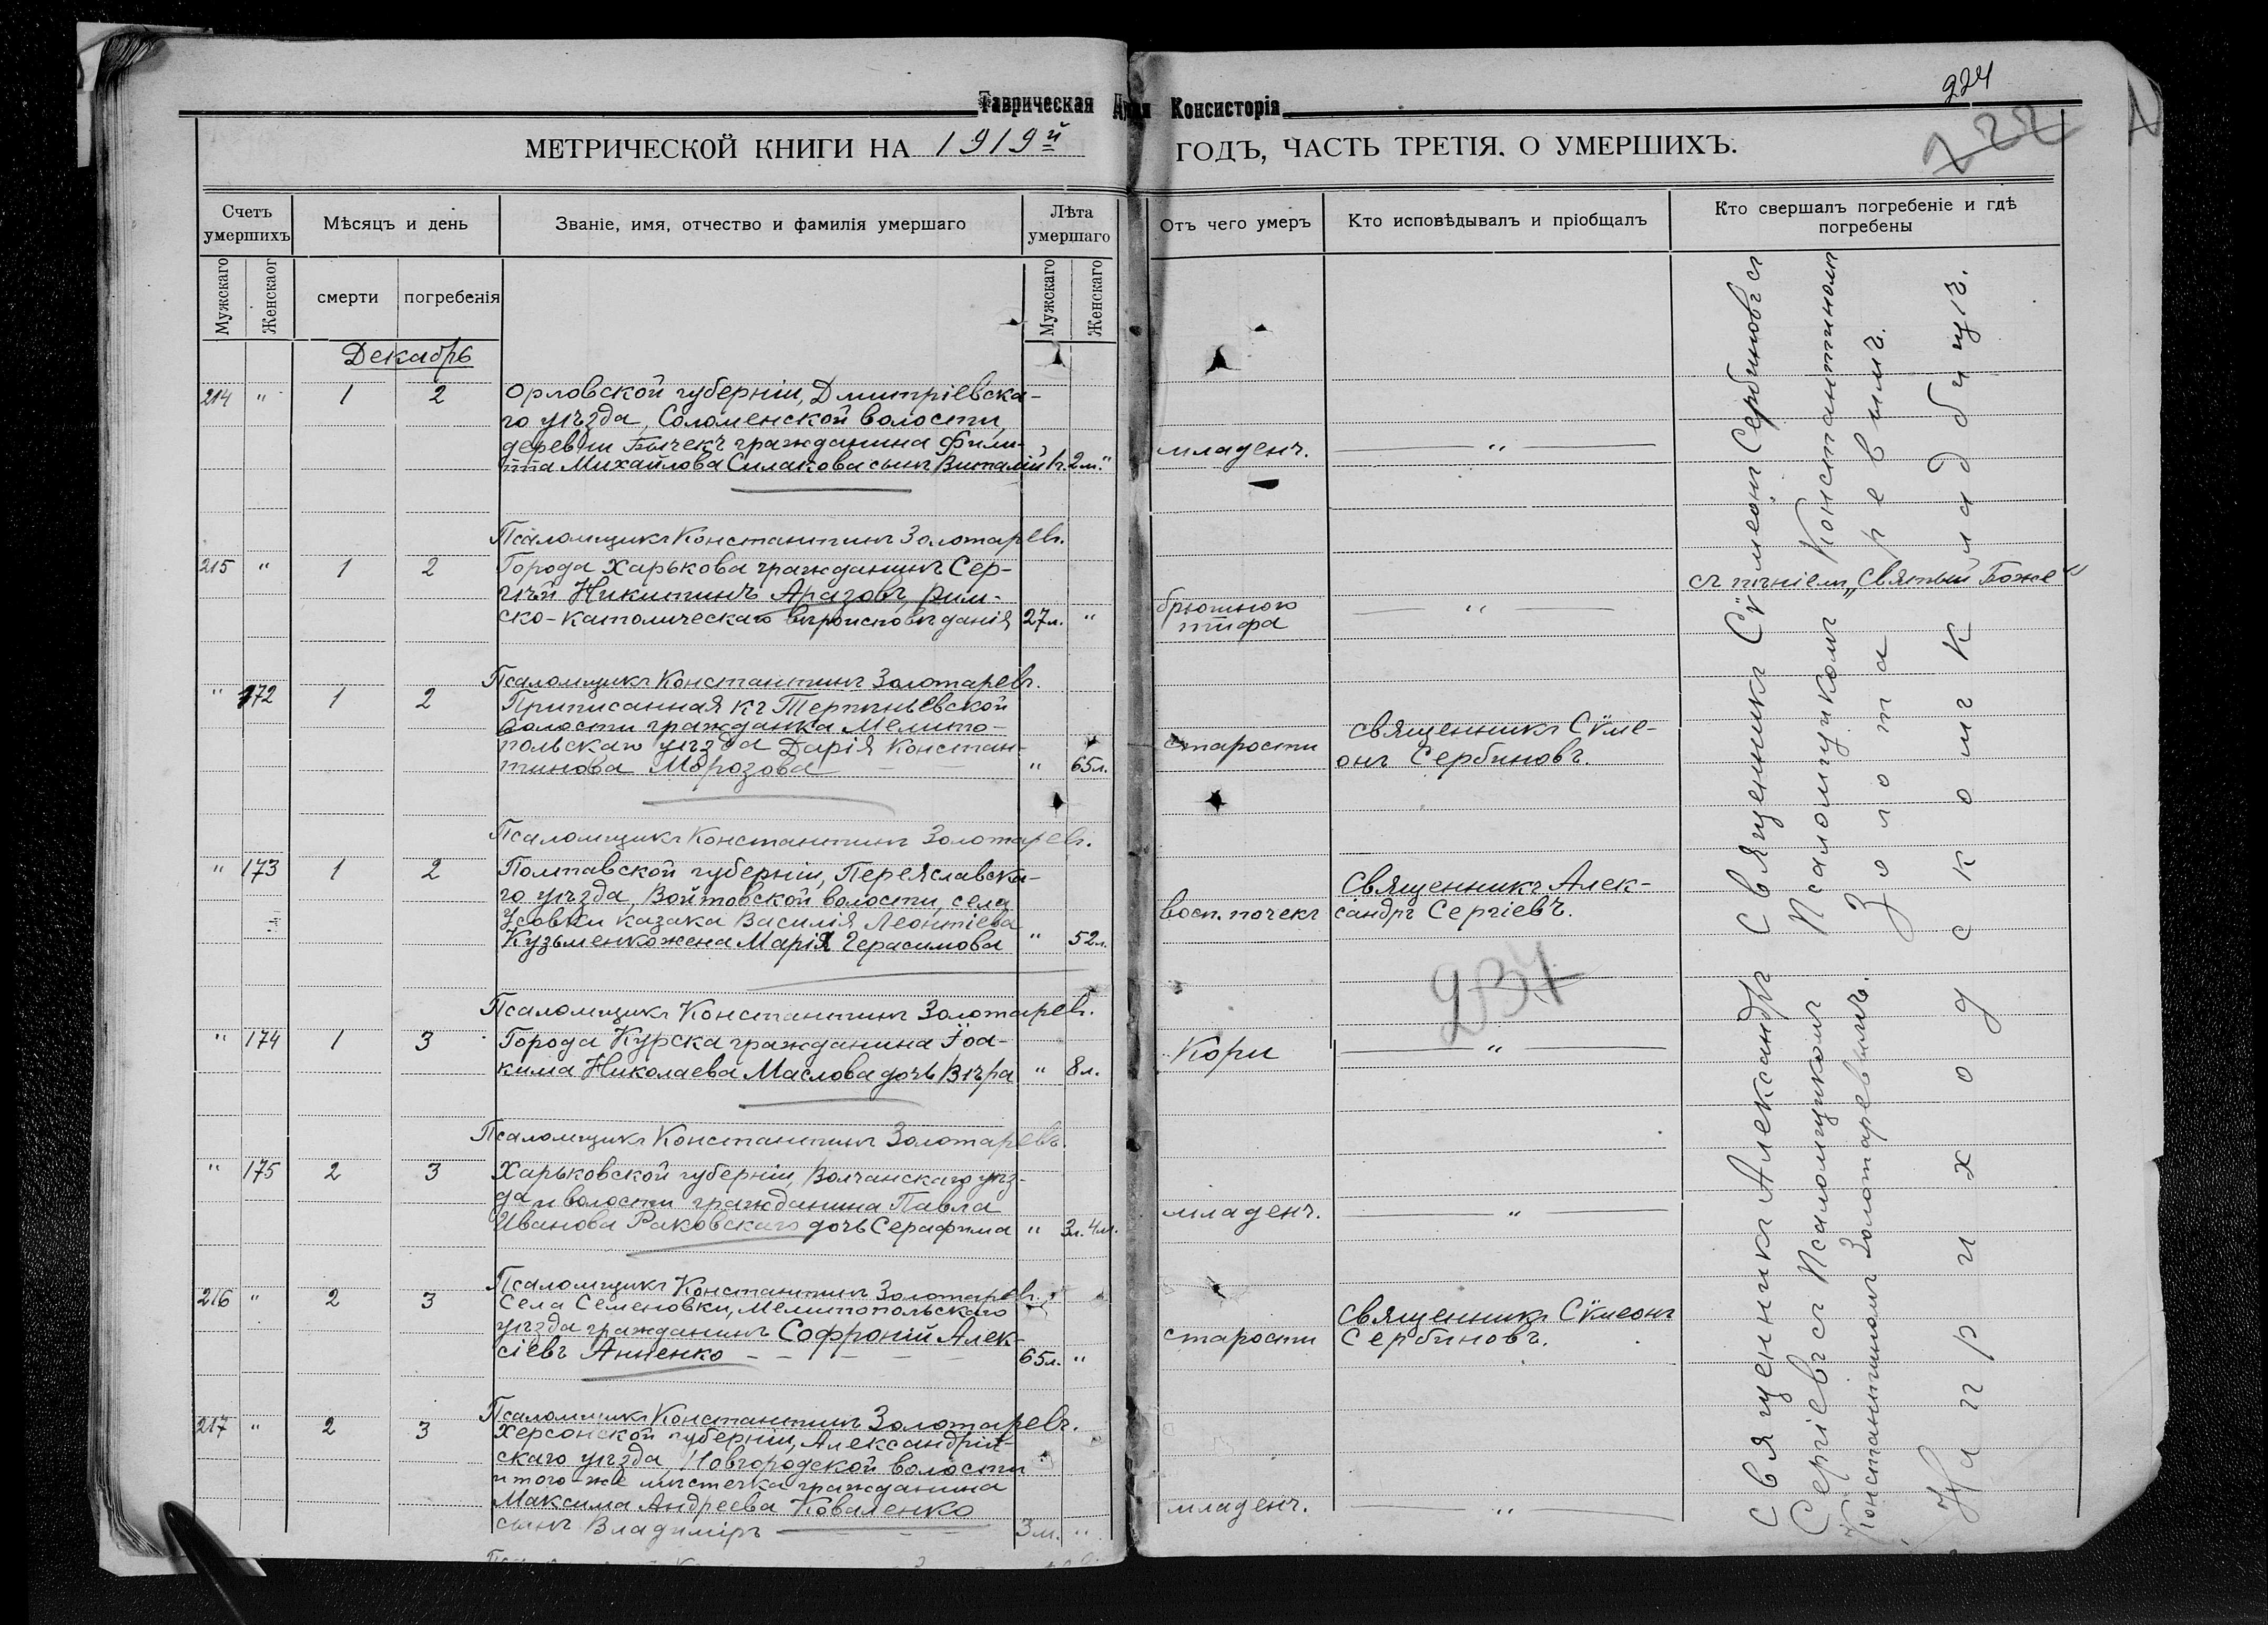 224
222
Таврическая Дух Консисторія
МЕТРИЧЕСКОЙ КНИГИ НА 1919й ГОДЪ, ЧАСТЬ ТРЕТІЯ. О УМЕРШИХЪ.
Счетъ умершихъ
Мѣсяцъ и день
Званіе, имя, отчество и фамилія умершаго
Лѣта умершаго
Отъ чего умеръ
Кто исповѣдывалъ и пріобщалъ
Кто свершалъ погребеніе и гдѣ погребены
Мужскаго
Женскаог
смерти
погребенія
Мужскаго
Женскаго
Декабрь
214 " 1 2 Орловской губерніи, Дмитріевска-
го уѣзда, Соломенской волости,
деревни Бычекъ гражданина Фили-
ппа Михайлова Силакова сынъ Виталій 1г. 2м. "
младенч. "
Псаломщикъ Константинъ Золотаревъ.
215 " 1 2 Города Харькова гражданинъ Сер-
гѣй Никитинъ Аразовъ, рим-
ско-католическаго вѣроисповѣданія 27л. "
брюшного
тифа "
съ пѣніемъ „Святый Боже"
Псаломщикъ Константинъ Золотаревъ.
" 172 1 2 Приписанная къ Терпѣньевской
волости гражданка Мелито-
польскаго уѣзда Дарія Констан-
тинова Морозова " 65л.
старости
Священникъ Сѵме-
онъ Сербиновъ.
Псаломщикъ Константинъ Золотаревъ.
" 173 1 2 Полтавской губерніи, Переяславска-
го уѣзда, Войтовской волости, села
Усовки казака Василія Леонтіева
Кузьменко жена Марія Герасимова " 52л.
восп. почекъ
Священникъ Алек-
сандръ Сергіевъ.
237
Псаломщикъ Константинъ Золотаревъ.
" 174 1 3 Города Курска гражданина Іоа-
кима Николаева Маслова дочь Вѣра " 8л.
Кори "
Псаломщикъ Константинъ Золотаревъ.
" 175 2 3 Харьковской губерніи, Волчанскаго уѣз-
да и волости гражданина Павла
Иванова Раковскаго дочь Серафима " 3л. 4м.
младенч. "
Псаломщикъ Константинъ Золотаревъ.
216 " 2 3 Села Семеновки, Мелитопольскаго
уѣзда гражданинъ Софроній Алек-
сіевъ Анненко 65л. "
старости
Священникъ Сѵмеонъ
Сербиновъ.
Псаломщикъ Константинъ Золотаревъ.
217 " 2 3 Херсонской губерніи, Александрій-
скаго уѣзда, Новгородской волости
и того-же мѣстечка гражданина
Максима Андреева Коваленко
сынъ Владиміръ 3м. "
младенч. "
Священникъ Александръ Священникъ Сѵмеонъ Сербиновъ съ
Сергіевъ съ Псаломщикомъ Псаломщикомъ Константиномъ
Константиномъ Золотаревымъ. Золотаревымъ.
На приходскомъ кладбищѣ.